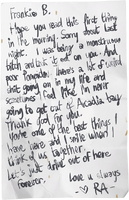 Frankie B.
Hope you read this first thing
in the morning. Sorry about last
night. I was being a monstrous
bitch and took it out on you. And
poor Pomonok. There's a lot of weird
shit going on in my life and
sometimes I feel like I'm never
going to get out of Acadia bay.
Thank God for you.
You're one of the best things I
have here and I smile when I
think of us together.
Let's just drive out of here.
Forever.
Love u always
RA-